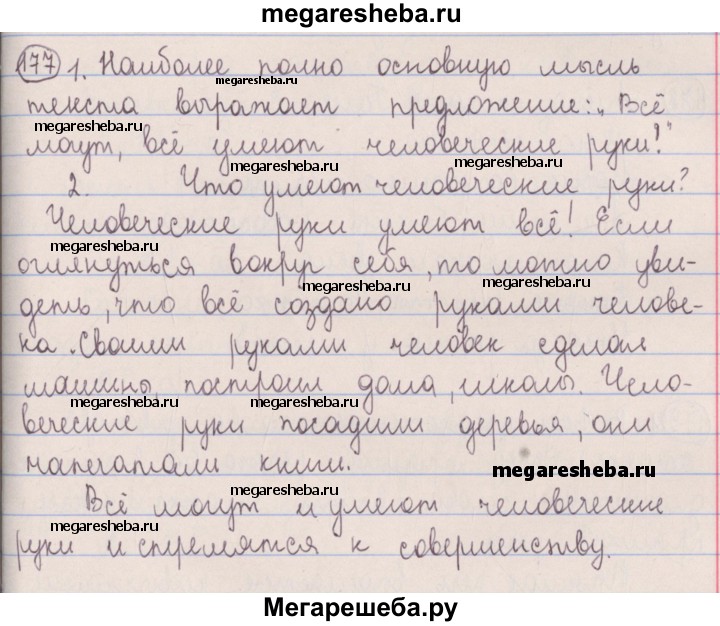 megaresheba.ru
177 1. Наиболее полно основную мысль
megaresheba.ru
текста выражает предложение: „Всё
megaresheba.ru
megaresheba.ru
могут, всё умеют человеческие руки!"
megaresheba.ru
megaresheba.ru
2. Что умеют человеческие руки?
Человеческие руки умеют всё! Если
megaresheba.ru
megaresheba.ru
оглянуться вокруг себя, то можно уви-
megaresheba.ru
деть, что всё создано руками челове-
ка. Своими руками человек сделал
машины, построил дома, школы. Чело-
megaresheba.ru
megaresheba.ru
веческие руки посадили деревья, они
напечатали книги.
megaresheba.ru
megaresheba.ru
Всё могут и умеют человеческие
megaresheba.ru
megaresheba.ru
руки и стремятся к совершенству.
Мегарешеба.ру